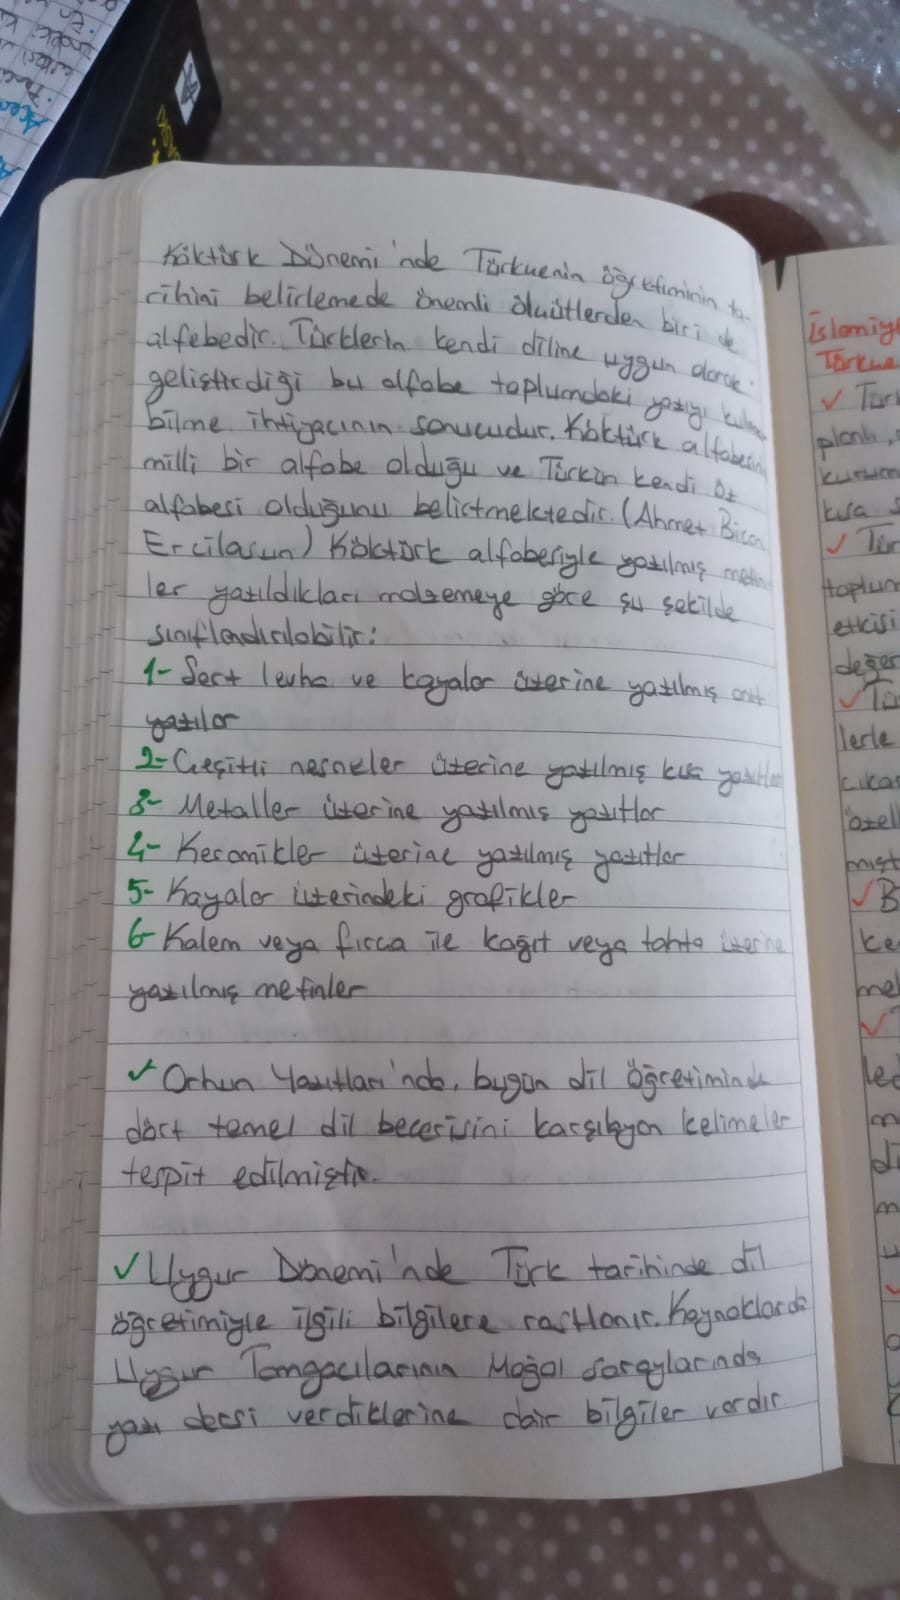 Köktürk Dönemi'nde Türkçenin öğretiminin ta-
rihini belirlemede önemli ölçütlerden biri de
alfebedir. Türklerin kendi diline uygun olarak
geliştirdiği bu alfabe toplumdaki yazıyı
bilme ihtiyacının sonucudur. Köktürk alfabesinin
milli bir alfabe olduğu ve Türkün kendi öz
alfabesi olduğunu belirtmektedir. (Ahmet Bican
Ercilasun) Köktürk alfabesiyle yazılmış metin
ler yazıldıkları malzemeye göre şu şekilde
sınıflandırılabilir:
1- Sert levha ve kayalar üzerine yazılmış
yazılar
2- Çeşitli nesneler üzerine yazılmış kısa yazıtlar
3- Metaller üzerine yazılmış yazıtlar
4- Keramikler üzerine yazılmış yazıtlar
5- Kayalar üzerindeki grafikler
6- Kalem veya fırça ile kağıt veya tahta üzerine
yazılmış metinler
✓ Orhun Yazıtları'nda, bugün dil öğretiminde
dört temel dil becerisini karşılayan kelimeler
tespit edilmiştir.
✓ Uygur Dönemi'nde Türk tarihinde dil
öğretimiyle ilgili bilgilere rastlanır. Kaynaklarda
Uygur Tamgacılarının Moğol saraylarında
yazı dersi verdiklerine dair bilgiler vardır.
İslamiy
Türkçe
✓ Türk
planlı,
kurum
kısa s
✓ Tür
toplum
etkisi
değer
✓ Tür
lerle
çıkar
özell
mişt
✓ B
ke
mel
✓ T
led
m
di
m